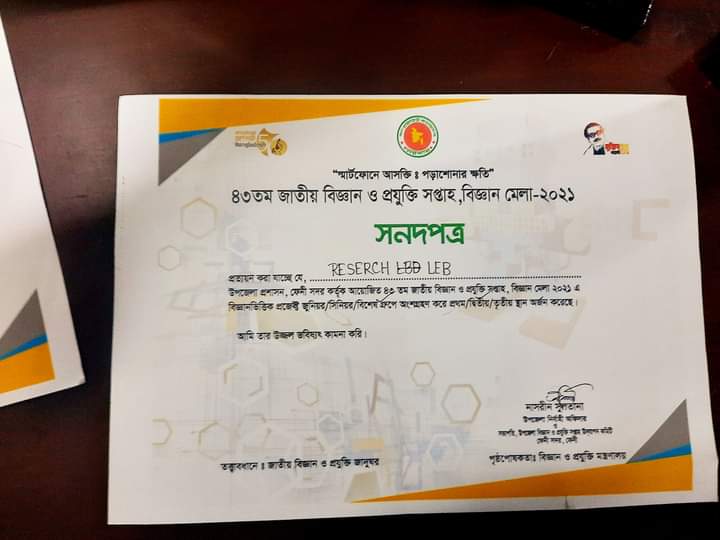 "স্মার্টফোনে আসক্তি ঃ পড়াশোনার ক্ষতি"
৪৩তম জাতীয় বিজ্ঞান ও প্রযুক্তি সপ্তাহ,বিজ্ঞান মেলা-২০২১
সনদপত্র
প্রত্যয়ন করা যাচ্ছে যে, RESERCH LBD LEB
উপজেলা প্রশাসন, ফেনী সদর কর্তৃক আয়োজিত ৪৩ তম জাতীয় বিজ্ঞান ও প্রযুক্তি সপ্তাহ, বিজ্ঞান মেলা ২০২১ এ
বিজ্ঞানভিত্তিক প্রজেক্ট জুনিয়র/সিনিয়র/বিশেষ গ্রুপে অংশগ্রহণ করে প্রথম/দ্বিতীয়/তৃতীয় স্থান অর্জন করেছে।
আমি তার উজ্জ্বল ভবিষ্যৎ কামনা করি।
নাসরীন সুলতানা
উপজেলা নির্বাহী অফিসার
ও
সভাপতি, উপজেলা বিজ্ঞান ও প্রযুক্তি সপ্তাহ উদযাপন কমিটি
ফেনী সদর, ফেনী
তত্ত্বাবধানে ঃ জাতীয় বিজ্ঞান ও প্রযুক্তি জাদুঘর
পৃষ্ঠপোষকতাঃ বিজ্ঞান ও প্রযুক্তি মন্ত্রণালয়